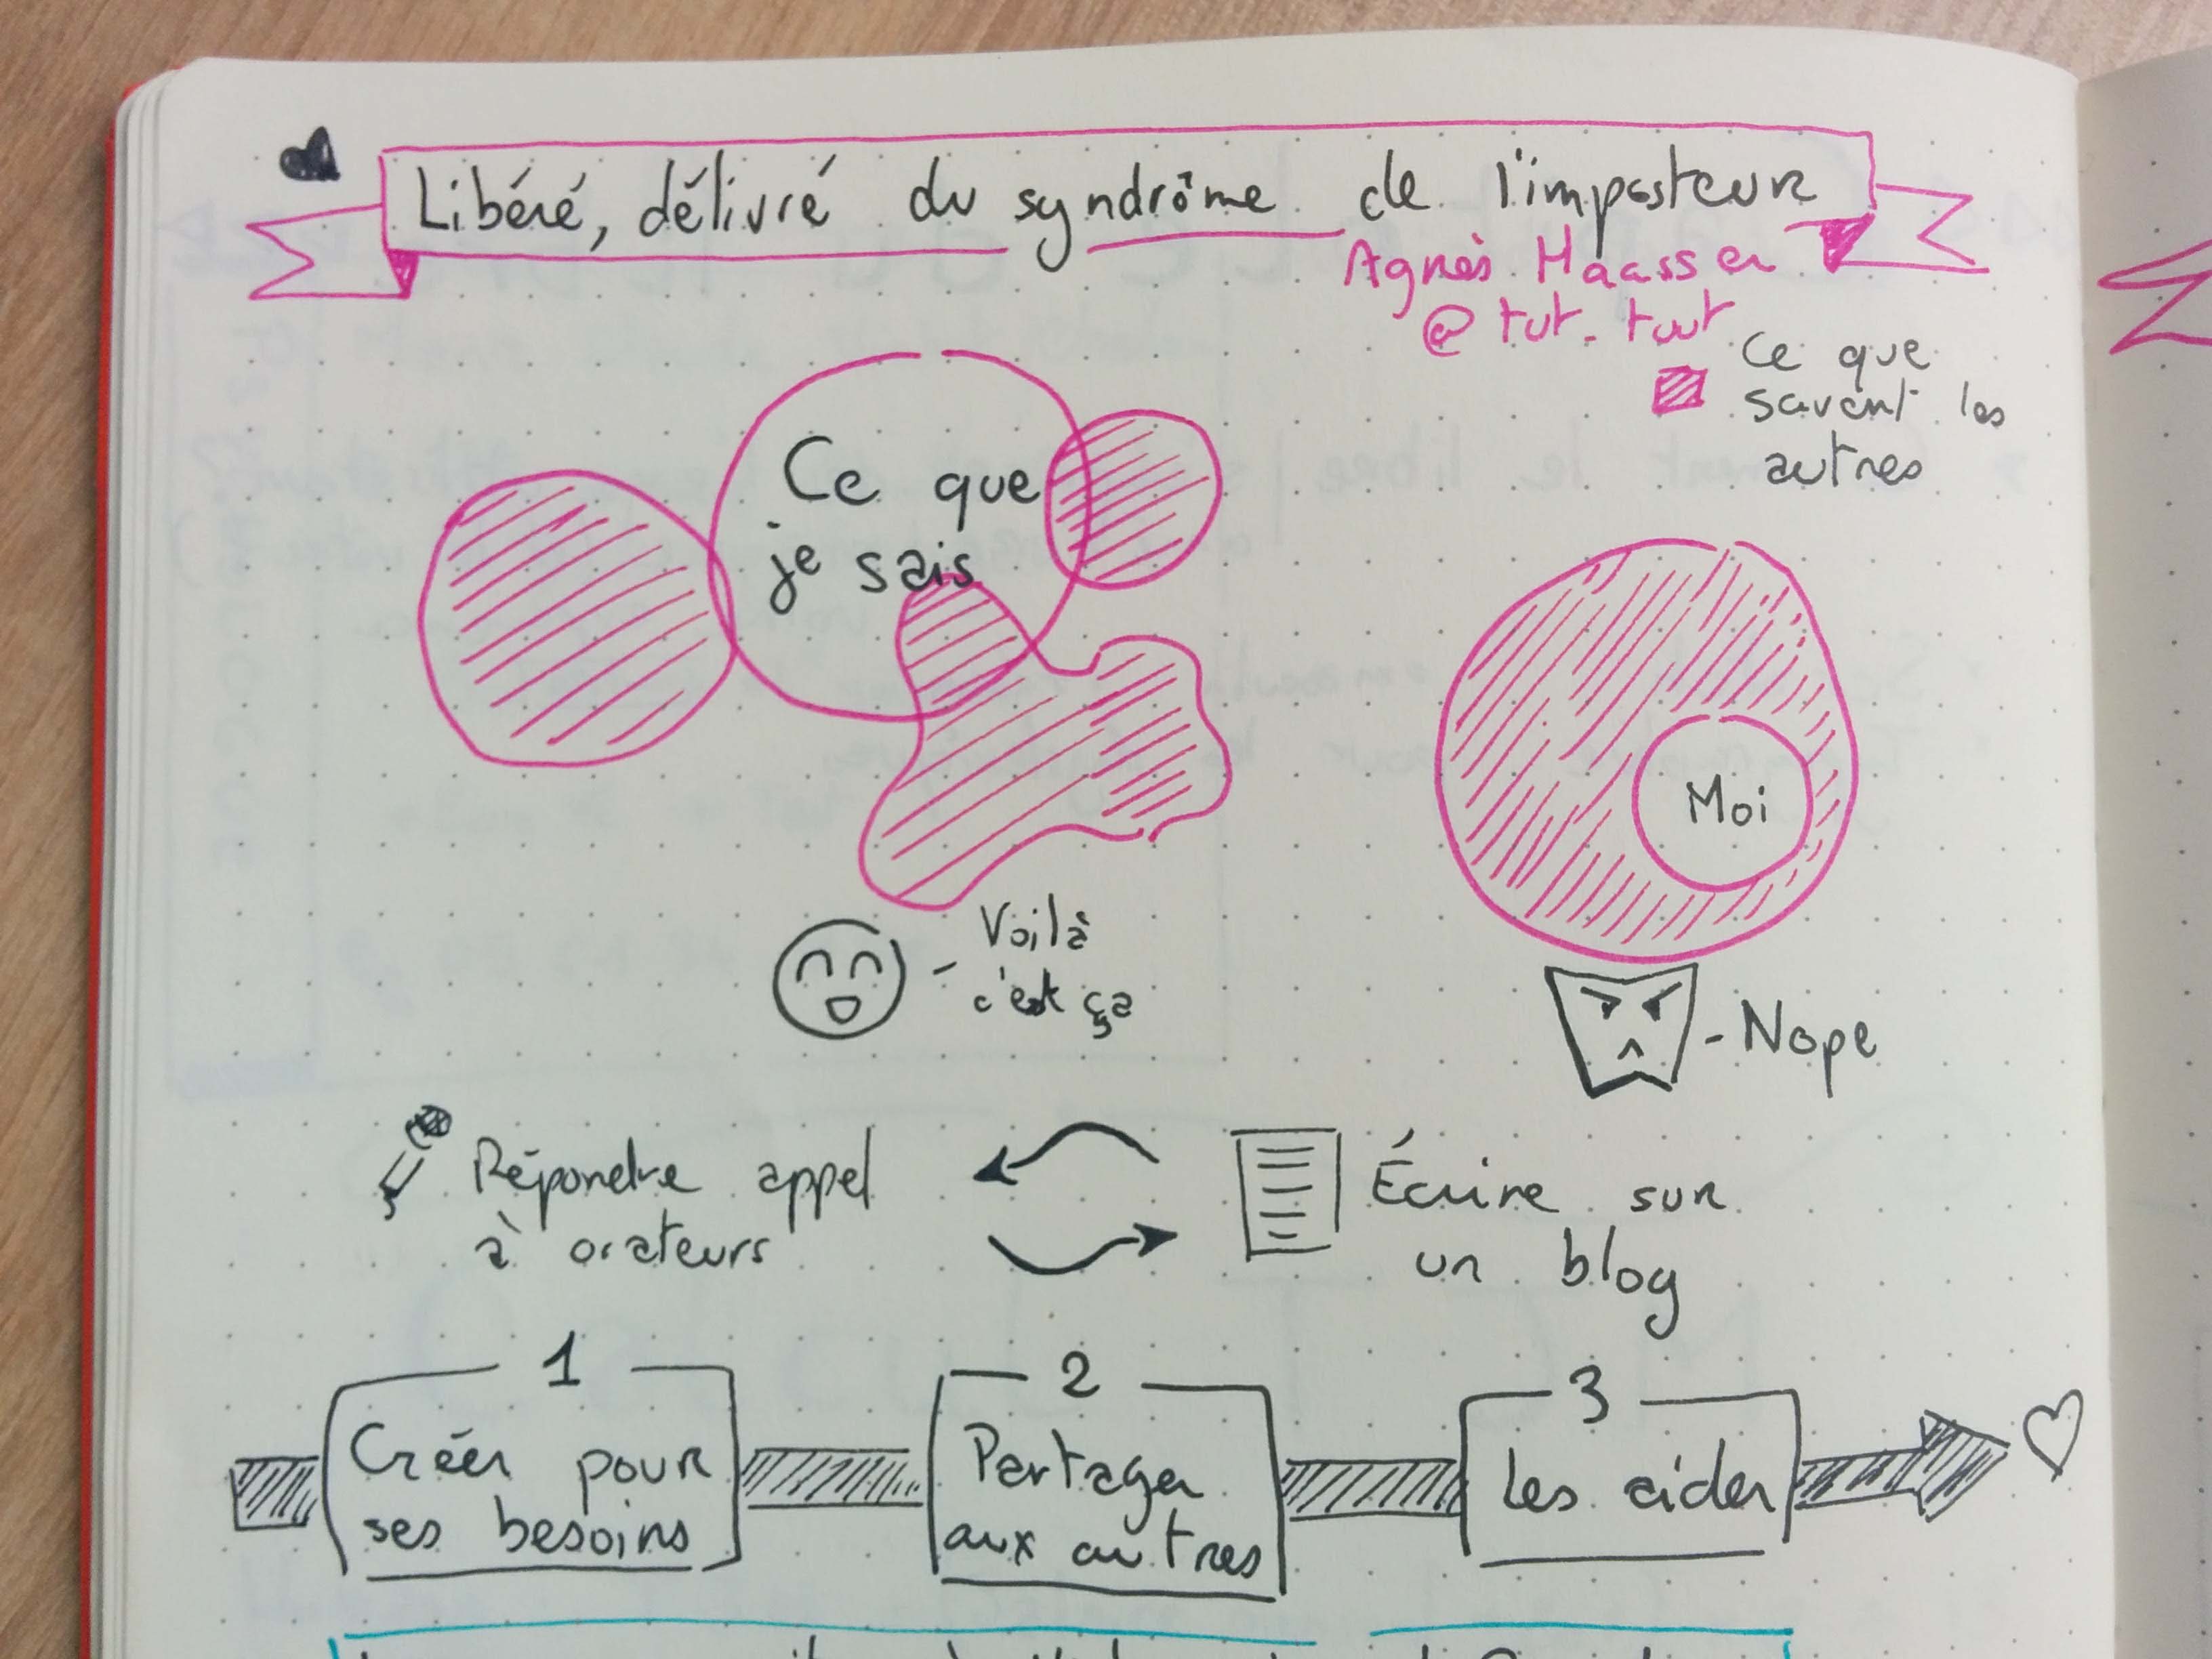 Libéré, délivré du syndrôme de l'imposteur
Agnès Haasser
@tut_tuut
Ce que
savent les
autres
Ce que
je sais
Moi
Voilà
c'est ça
- Nope
Répondre appel
à orateurs
Écrire sur
un blog
1
Créer pour
ses besoins
2
Partager
aux autres
3
Les aider